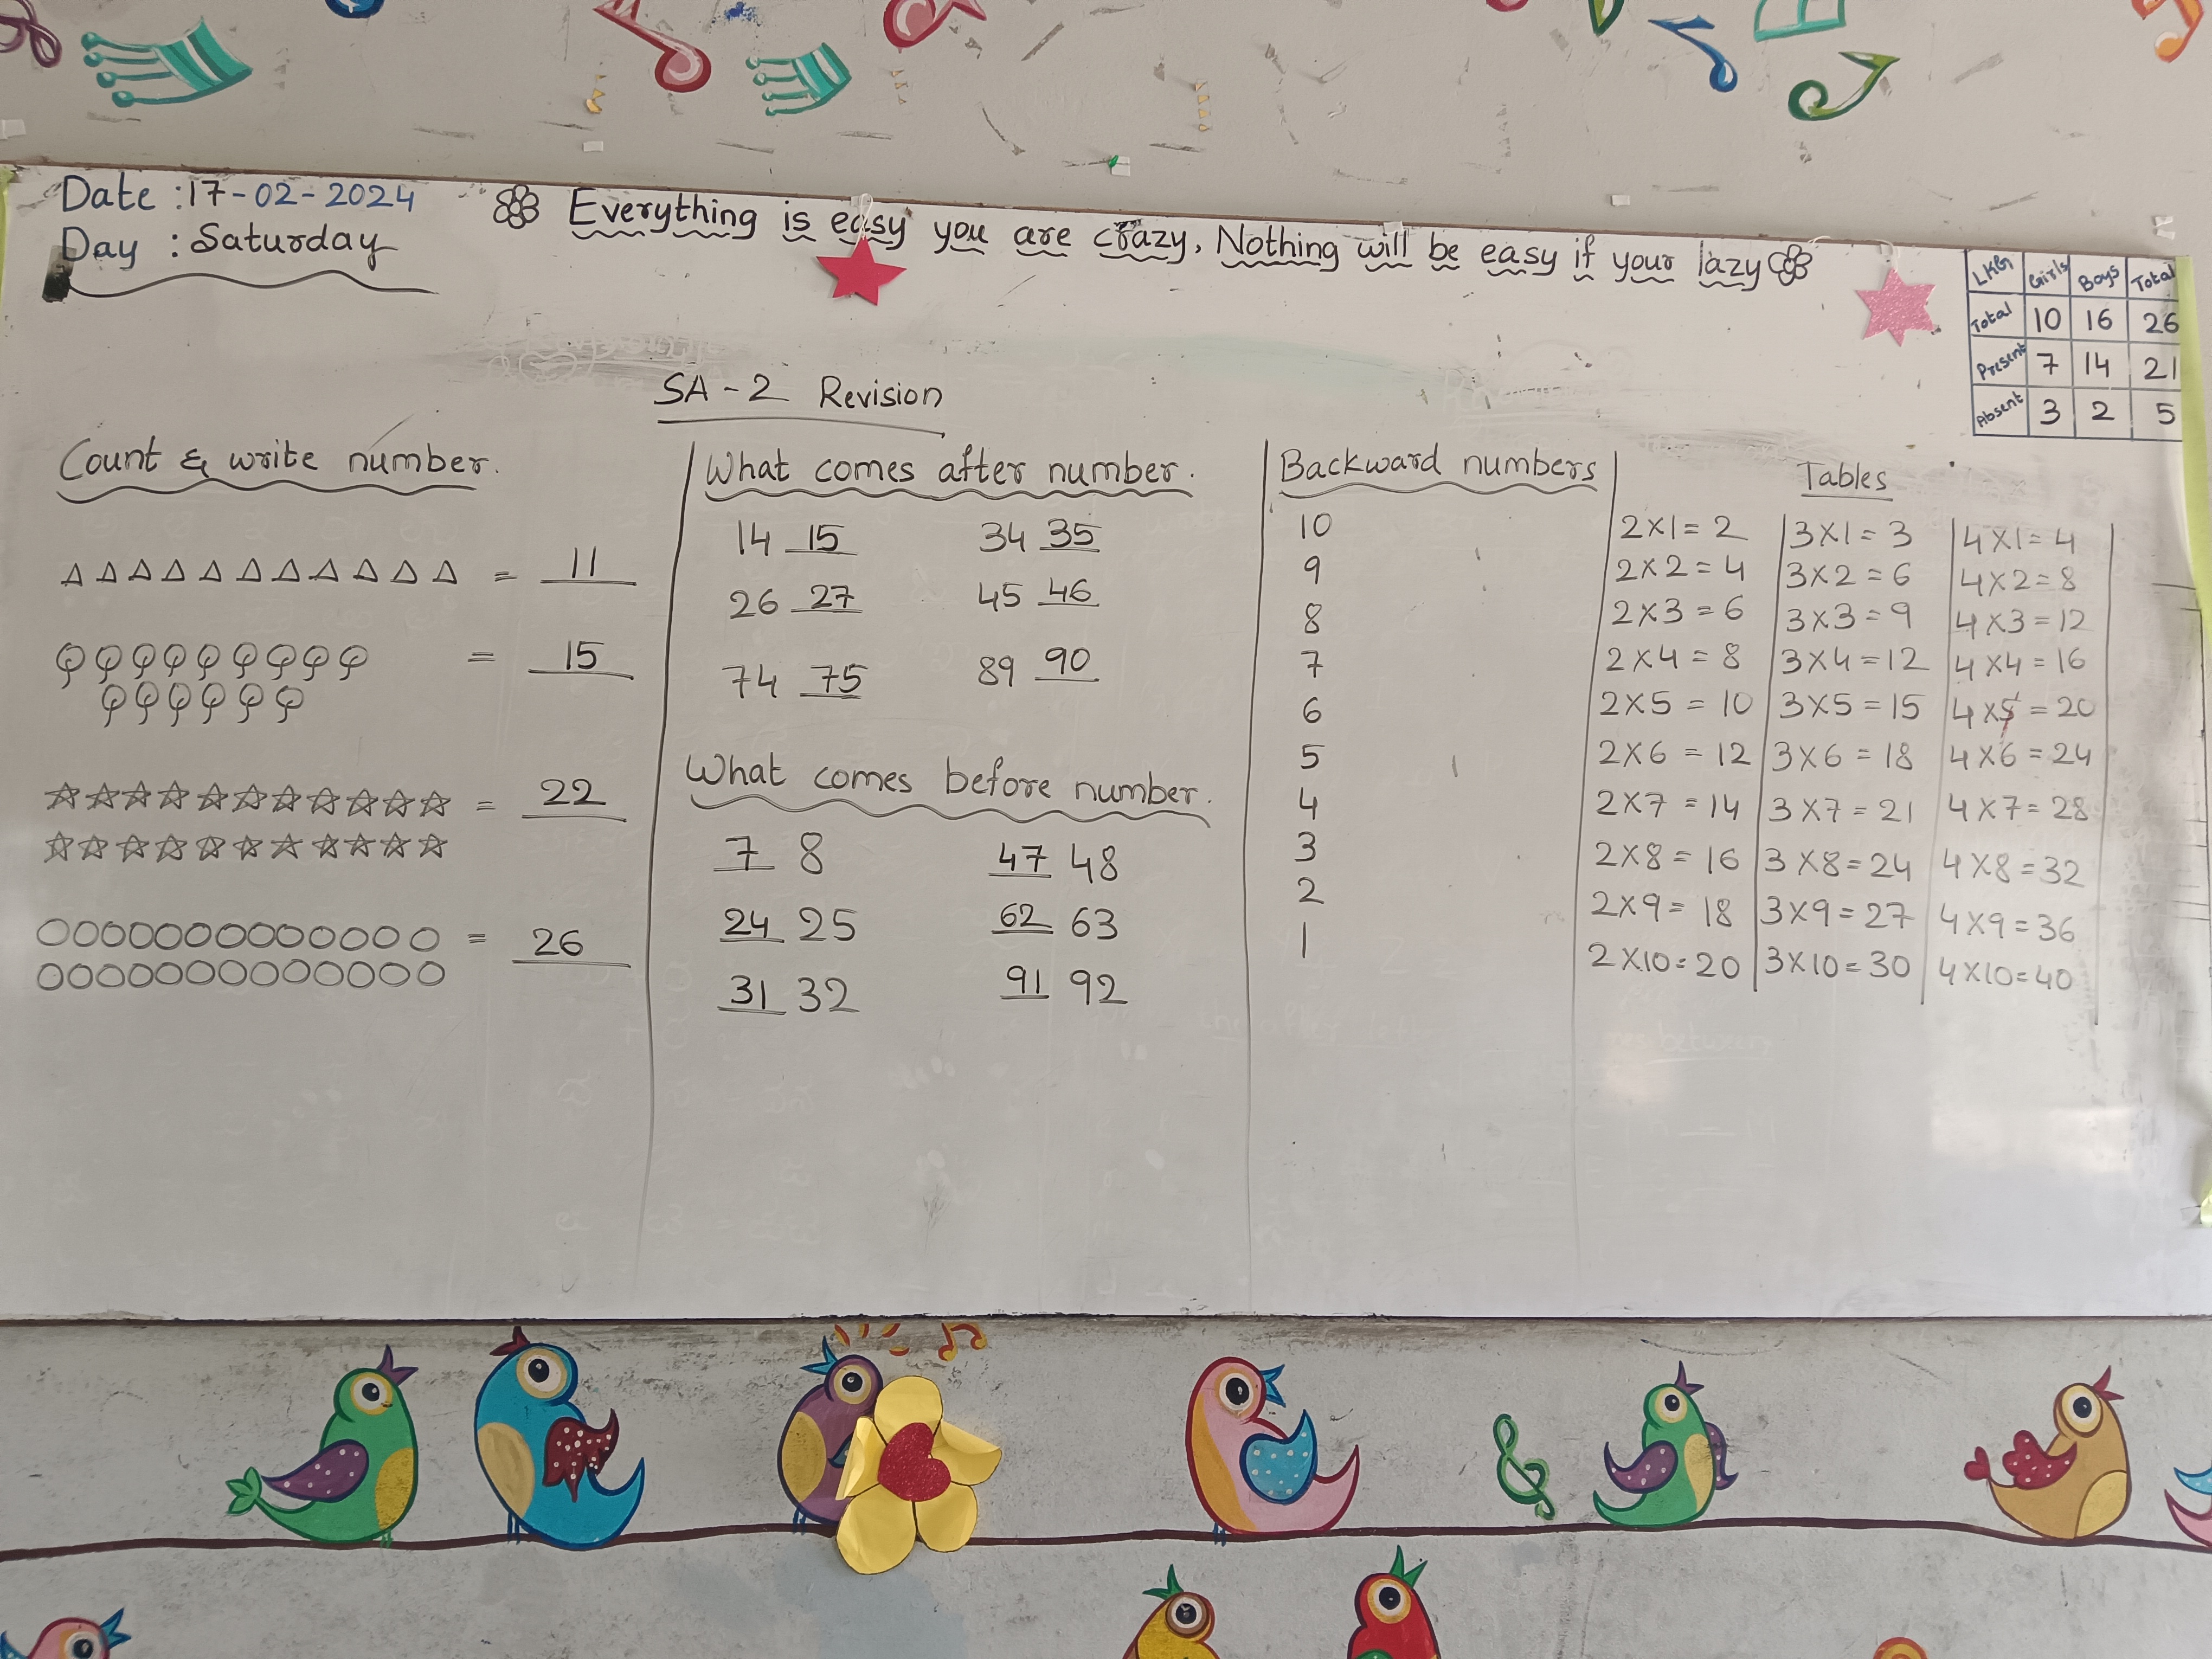 Date : 17-02-2024
Day : Saturday
Everything is easy you are crazy, Nothing will be easy if your lazy
LKG Girls Boys Total
Total 10 16 26
Present 7 14 21
Absent 3 2 5
SA-2 Revision
Count & write number.
= 11
= 15
= 22
= 26
What comes after number.
14 15 34 35
26 27 45 46
74 75 89 90
What comes before number.
7 8 47 48
24 25 62 63
31 32 91 92
Backward numbers
10
9
8
7
6
5
4
3
2
1
Tables
2X1=2 3X1=3 4X1=4
2X2=4 3X2=6 4X2=8
2X3=6 3X3=9 4X3=12
2X4=8 3X4=12 4X4=16
2X5=10 3X5=15 4X5=20
2X6=12 3X6=18 4X6=24
2X7=14 3X7=21 4X7=28
2X8=16 3X8=24 4X8=32
2X9=18 3X9=27 4X9=36
2X10=20 3X10=30 4X10=40